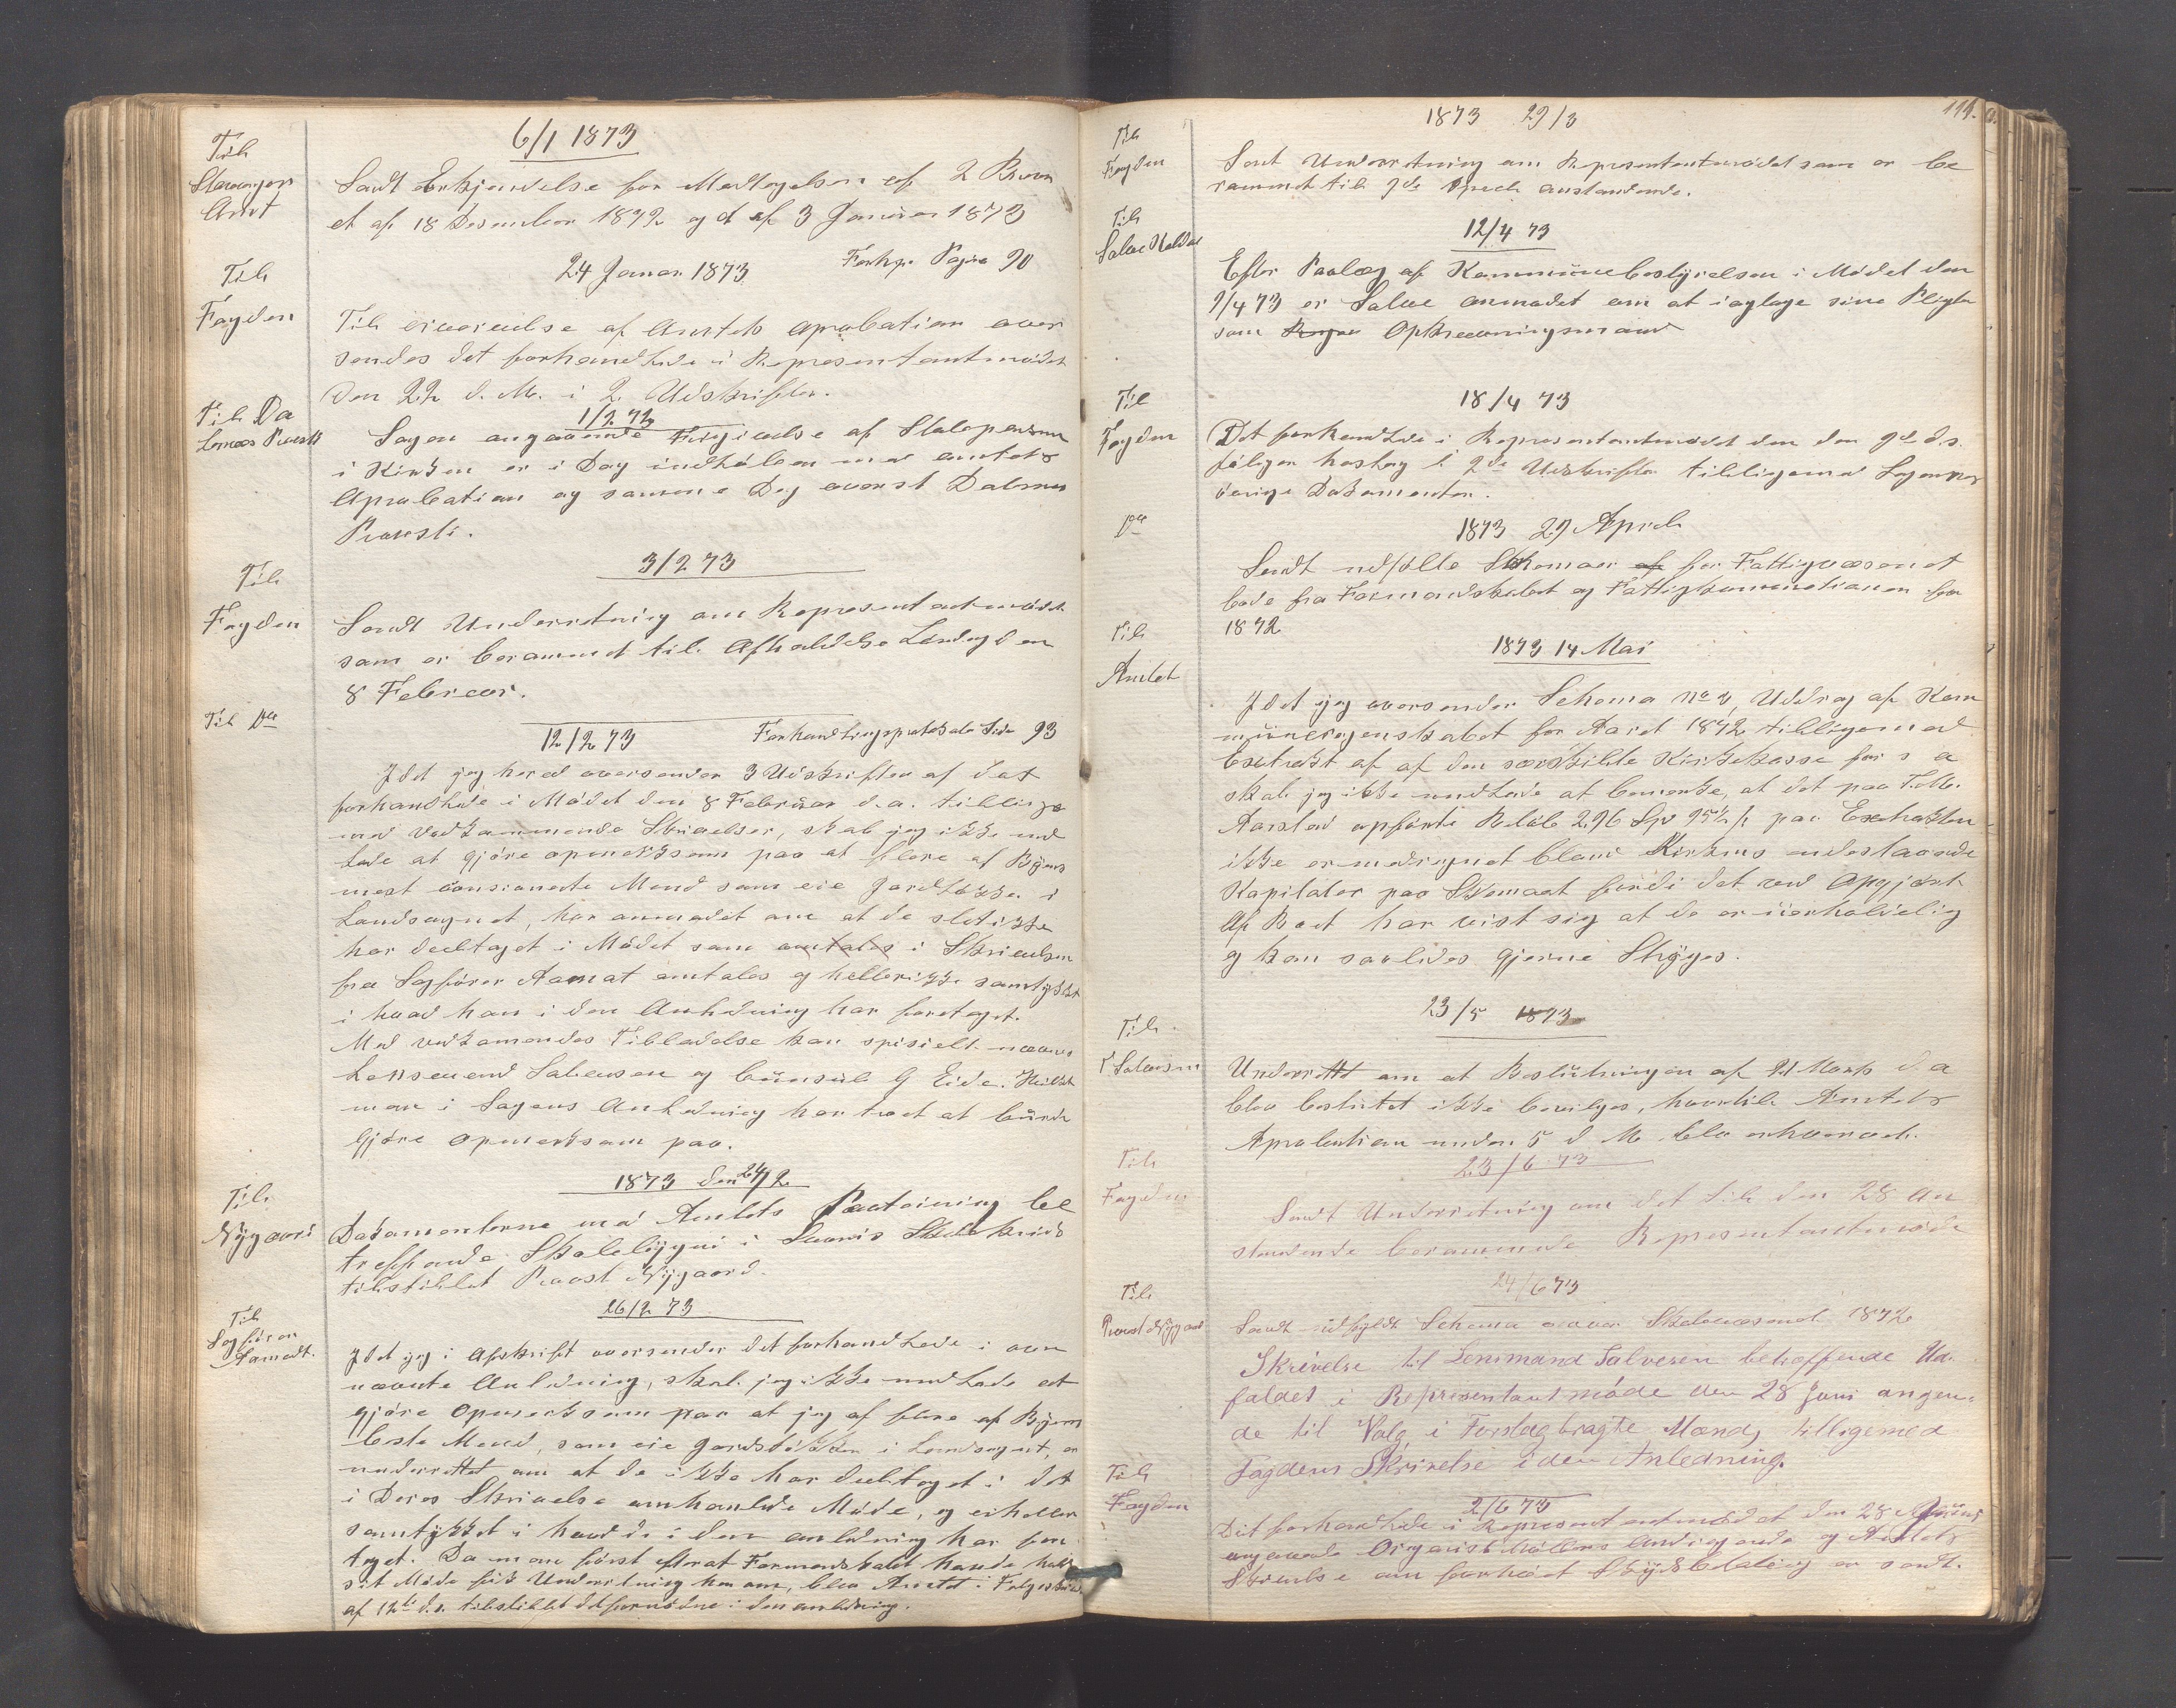 6/1 1873
Til
Stavanger
Amt
Sendt Erkjendelse for Modtagelsen af 2 Breve
et af 18 Desember 1872 og et af 3 Januar 1873
24 Januar 1873 Forhp. Pagina 90
Til
Fogden
Til ervervelse af Amtets aprobation over
sendes det forhandlede i Representantmødet
den 22 d. M. i 2 Udskrifter.
1/2 73
Til Da
lernes Provsti
Sagen angaaende af
i Kirken er i Dag indhølen med amtets
Aprobation og samme Dag overst Dalernes
Provsti.
3/2 73
Til
Fogden
Sendt Underretning om Representantmøde
som er berammet til Afholdelse Lørdag den
8 Februar.
Til Do
12/2 73 Forhandlingsprotokolo Side 93
Idet jeg herved oversender 3 Udskrifter af det
forhandlede i Mødet den 8 Februar d. a. tillige
med vedkommende Skrivelser, skal jeg ikke und
lade at gjøre opmerksom paa at flere af Byens
mest Mend som eie Jordløkke i
Landsognet, har anmodet om at de slet ikke
har deeltaget i Mødet som omtales i Skrivelsen
fra Sagfører Aamot omtales og heller ikke samtykket
i hvad han i den Anledning har foretaget.
Med vedkomendes Tilladelse kan spisielt nævnes
Lensmand Salvesen og Consul G Eide. Hvilket
man i Sagens Anledning har troet at burde
Gjøre opmerksom paa.
1873 den 24/2
Til
Nygaard
Dokumenterne med Amtets Paategning be
treffende Skolebygni i Skolekreds
tilstillet Provst Nygaard.
26/2 73
Til
Sagfører
Aamodt.
Idet jeg i Afskrift oversender det forhandlede i oven
nævnte Anledning, skal jeg ikke undlade at
gjøre Opmerksom paa at jeg af flere af Byens
beste Mend, som eie Jordsløkker i Landsognet, er
underrettet om at de ikke har deeltaget i det
i Deres Skrivelse omhanlede Møde, og ei heller
samtykket i hvad de i den anledning har fore
taget. Da man først efter at Formandskabet havde holdt
sit Møde fik Underretning her om, blev Amtet i Følgeskriv
af 12te d. a. tilstillet det fornødne i den anledning.
114.
1873 29/3
Til
Fogden
Sent Underretning om Representantmødet som er be
rammet til 9de April anstaaende.
12/4 73
Til
Salve
Efter Paalæg af Kommünebestyrelsen i Mødet den
9/4 73 er Salve anmodet om at iagtage sine Pligter
som Opkrevningsmand
18/4 73
Til
Fogden
Det forhandlede i Representantmødet den den 9de d. s.
følger hoslag i 2de Udskrifter tilligemed Sagens
øvrige Dokumenter.
Do
1873 29 April
Sendt udfølte Skemaer af for Fattigvæsenet
bode fra Formandskabet og Fattigkommisionen for
1872
1873 14 Mai
Til
Amtet
Idet jeg oversender Schema No 2, Uddrag af Kom
müneregenskabet for Aaret 1872 tilligemed
Extrakt af af den særskilte Kirkekasse for s a
skal jeg ikke undlade at bemerke, at det paa T. M.
Aarstad opførte Beløb 296 Spd 95½ s paa Extrakten
ikke er medregnet bland Kirkens udestaaende
Kapitaler paa Skemaet fordi det ved Opgjørt
Af Boet har vist sig at de er üerholdelig
og kan saaledes gjerne Strÿges.
23/5 1873
Til
Salvesen
Underrettet om at Beslütningen af 21 Marts d a
blev besluttet ikke bevilges, hvortil Amtets
Aprobation under 5 d M blev erhvervet.
23/6 73
Til
Fogden
Sendt Underretning om det til den 28 an
staaende berammede Representantmøde
24/6 73
Til
Provst Nygaard
Sendt udfyldt Schema over Skolevæsenet 1872
Skrivelse til Lensmand Salvesen betræffende Ud-
faldet i Representantmøde den 28 Juni angaen-
de til Valg i Forslag bragte Mænd, tilligemed
Fogdens Skrivelse i den Anledning.
2/6 73
Til
Fogden
Det forhandlede i Representantmødet den 28
angaaende Organist Møllers Andragende og Amtets
Skrivelse om forhøiet Skÿdsbetaling er sendt.